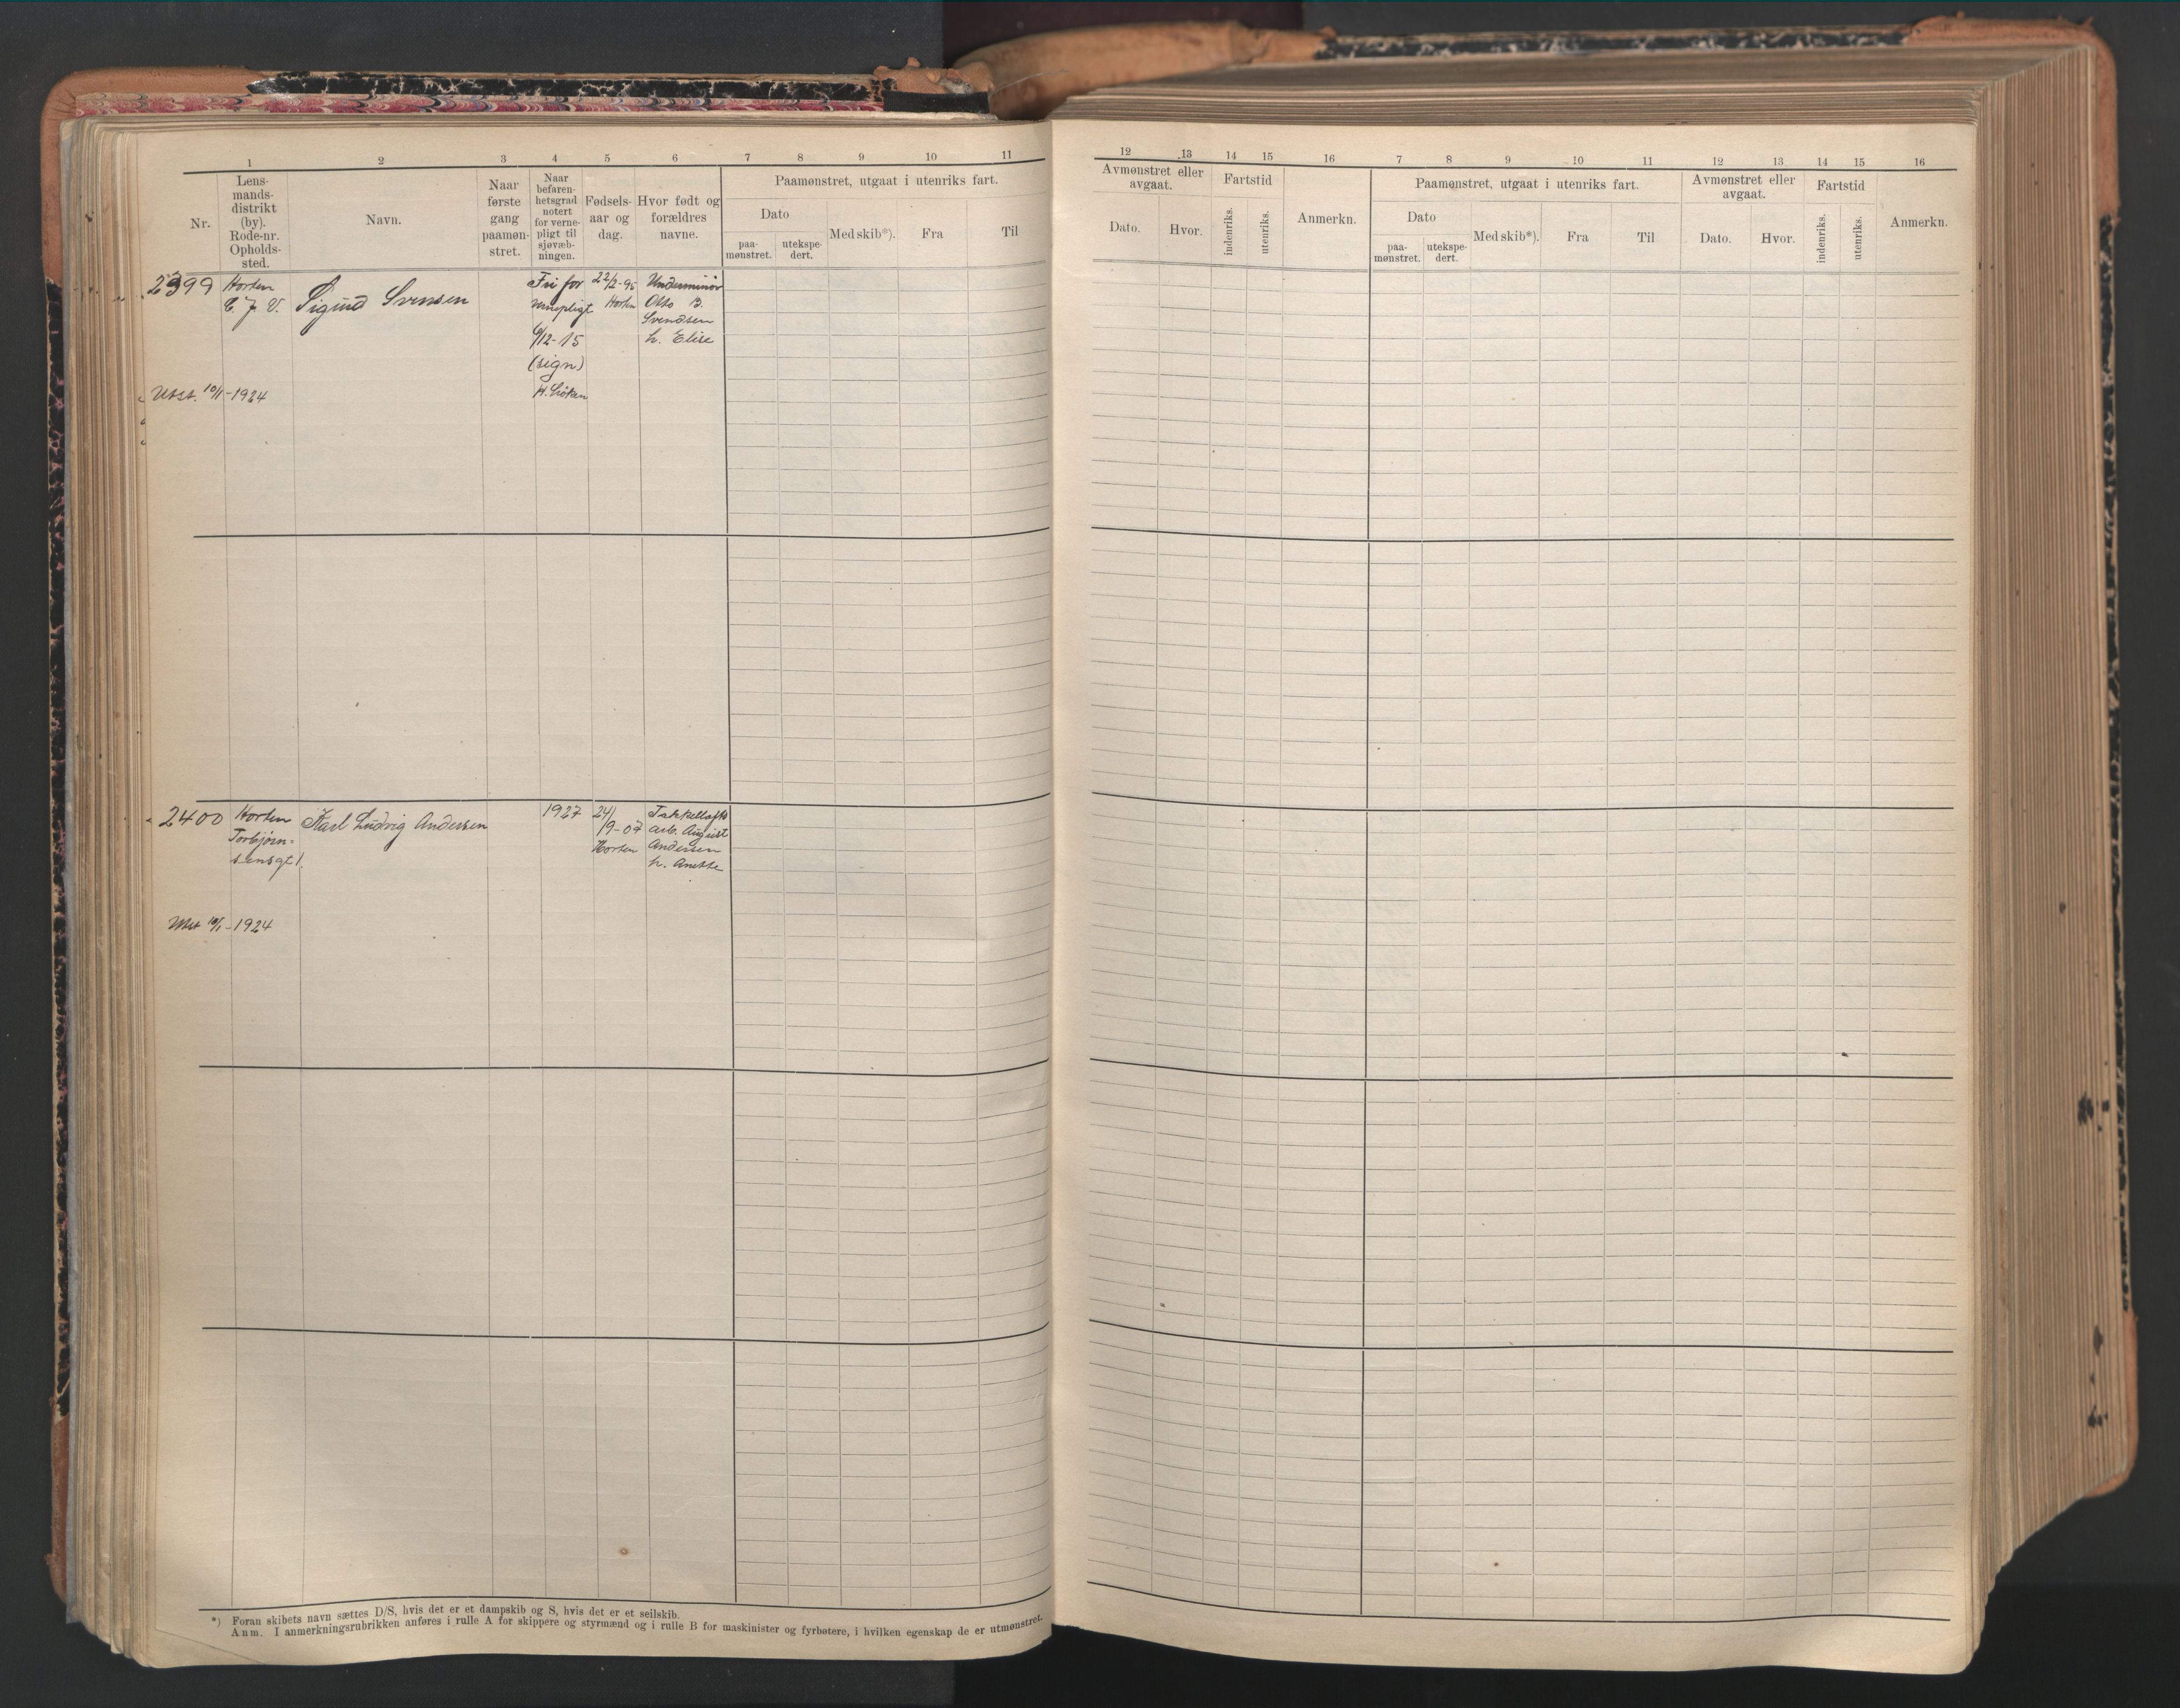 1 2 3 4 5 6 7 8 9 10 11
Nr.
Lens-
mands-
distrikt
(by).
Rode-nr.
Opholds-
sted.
Navn.
Naar
første
gang
paamøn-
stret.
Naar
befaren-
hetsgrad
notert
for verne-
pligt til
sjøvæb-
ningen.
Fødsels-
aar og
dag.
Hvor født og
forældres
navne.
Paamønstret, utgaat i utenriks fart.
Dato
paa-
mønstret.
utekspe-
dert.
Med skib*).
Fra
Til
2399
Horten
Sigurd Svensen
Fri for
vernepligt
6/12-15
(sign)
22/2-95
Horten
Underminör
Otto B.
Svendsen
h. Elise
Utst. 10/1-1924
2400
Horten
Torbjørn-
sensgt 1.
Karl Ludvig Andersen
1927
24/
9-07
Horten
Takkellofts
arb. August
Andersen
h. Anette
Utst 10/1-1924
*) Foran skibets navn sættes D/S, hvis det er et dampskib og S, hvis det er et seilskib.
Anm. I anmerkningsrubrikken anføres i rulle A for skippere og styrmænd og i rulle B for maskinister og fyrbøtere, i hvilken egenskap de er utmønstret.
12 13 14 15 16 7 8 9 10 11 12 13 14 15 16
Avmønstret eller
avgaat.
Dato.
Hvor.
Fartstid
indenriks.
utenriks.
Anmerkn.
Paamønstret, utgaat i utenriks fart.
Dato
paa-
mønstret.
utekspe-
dert.
Med skib*).
Fra
Til
Avmønstret eller
avgaat.
Dato.
Hvor.
Fartstid
indenriks.
utenriks.
Anmerkn.